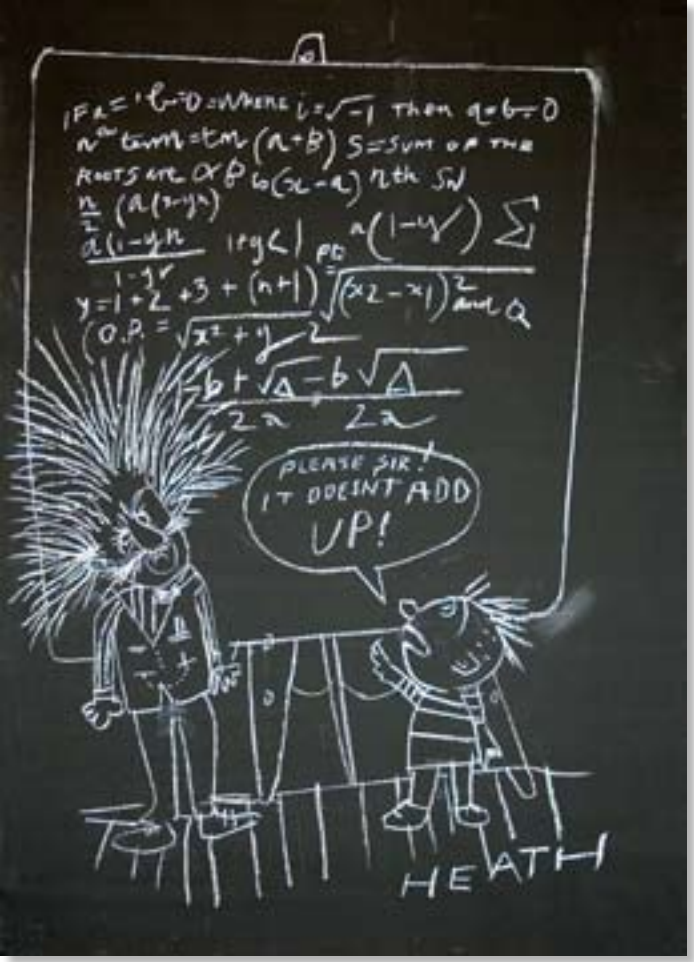 IF a = 'b=0 = WHERE i=√-1 Then a=b=0
nth term = tm (a+B) S=SUM OF THE
ROOTS are α β is (x-a) nth SN
n/2 (a(
a(1-yn 1+y<1 a(1-y) Σ
1-yr
y=1+2+3+(n+1) √(x2-x1)² and Q
(O.P. = √x²+y 2
-b+√Δ -b√Δ
2a 2a
PLEASE SIR!
IT DOESNT ADD
UP!
HEATH